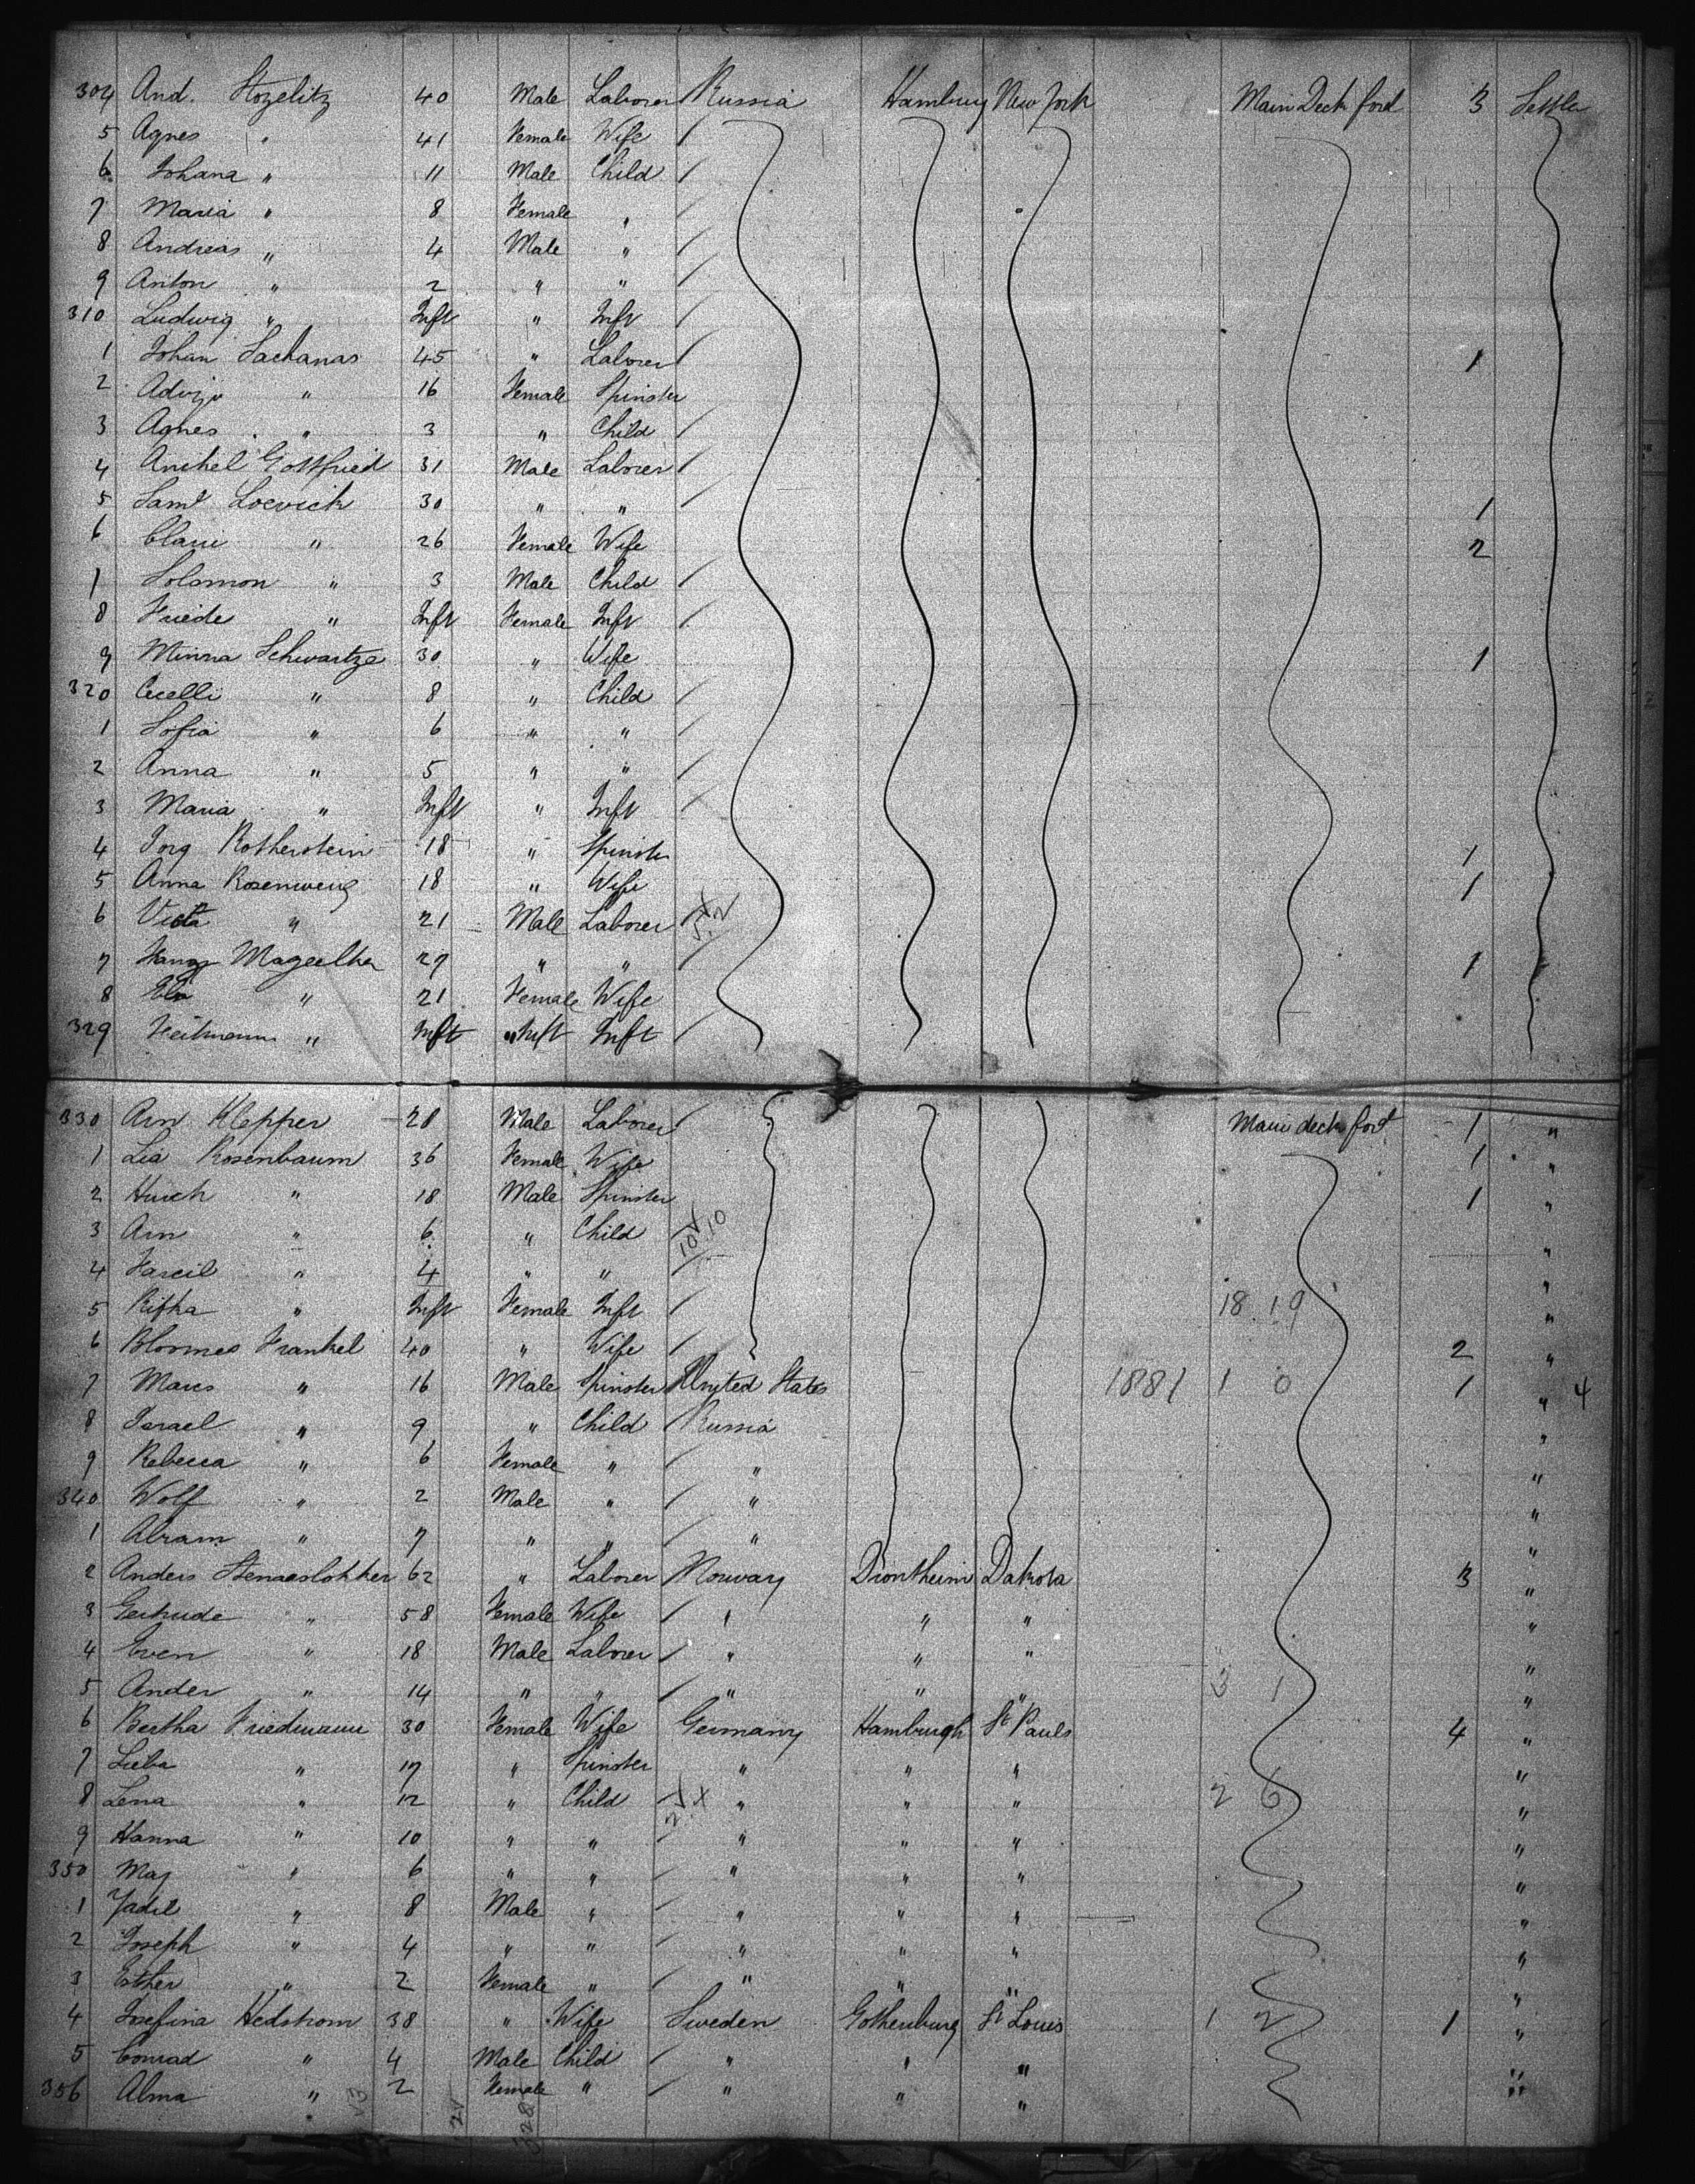 304 And. Stozelitz 40 Male Laborer Russia Hamburg New York Main Deck ford 3 Settler
5 Agnes " 41 Female Wife /
6 Johana " 11 Male Child /
7 Maria " 8 Female " /
8 Andreas " 4 Male " /
9 Anton " 2 " " /
310 Ludwig " Inft " Inft /
1 Johan Sachanas 45 " Laborer / 1
2 " 16 Female Spinster
3 Agnes " 3 " Child /
4 Anchel Gottfried 31 Male Laborer /
5 Saml Loevich 30 " " / 1
6 " 26 Female Wife 2
7 Solomon " 3 Male Child /
8 Friede " Inft Female Inft /
9 Minna Schwartze 30 " Wife 1
320 Cecelli " 8 " Child /
1 Sofia " 6 " " /
2 Anna " 5 " " /
3 Maria " Inft " Inft /
4 Rotherstein 18 " Spinster 1
5 Anna Rosenweng 18 " Wife 1
6 " 21 Male Laborer
7 27 " " / 1
8 " 21 Female Wife
329 Heitmann " Inft " Inft Inft /
330 Arn Klepper 28 Male Laborer / Main deck ford 1 "
1 Lea Rosenbaum 36 Female Wife 1 "
2 " 18 Male Spinster 1 "
3 Arn " 6 " Child 10 X 10 "
4 " 4 " " / "
5 Rifka " Inft Female Inft / 18 19 "
6 Frankel 40 " Wife / 2 "
7 Marcs " 16 Male Spinster United States 1881 1 0 1 " 4
8 Israel " 9 " Child Russia "
9 Rebecca " 6 Female " / " "
340 Wolf " 2 Male " / " "
1 Abram " 7 " " / " "
2 Anders Stenaeslokker 62 " Laborer Norway Drontheim Dakota 3 "
3 Gertrude " 58 Female Wife / " " " "
4 Even " 18 Male Laborer / " " " "
5 Ander " 14 " " / " " " 3 1 "
6 Bertha Friedmann 30 Female Wife Germany Hamburgh St Pauls 4 "
7 Lieba " 17 " Spinster " " " "
8 Lena " 12 " Child " " " 2 6 "
9 Hanna " 10 " " / " " " "
350 May " 6 " " / " " " "
1 Jadel " 8 Male " / " " " "
2 Joseph " 4 " " / " " " "
3 Esther " 2 Female " / " " " "
4 Josefina Hedstrom 38 " Wife Sweden Gothenburg St Louis 1 2 1 "
5 Conrad " 4 Male Child / " " " "
356 Alma " 2 Female " / " " " "